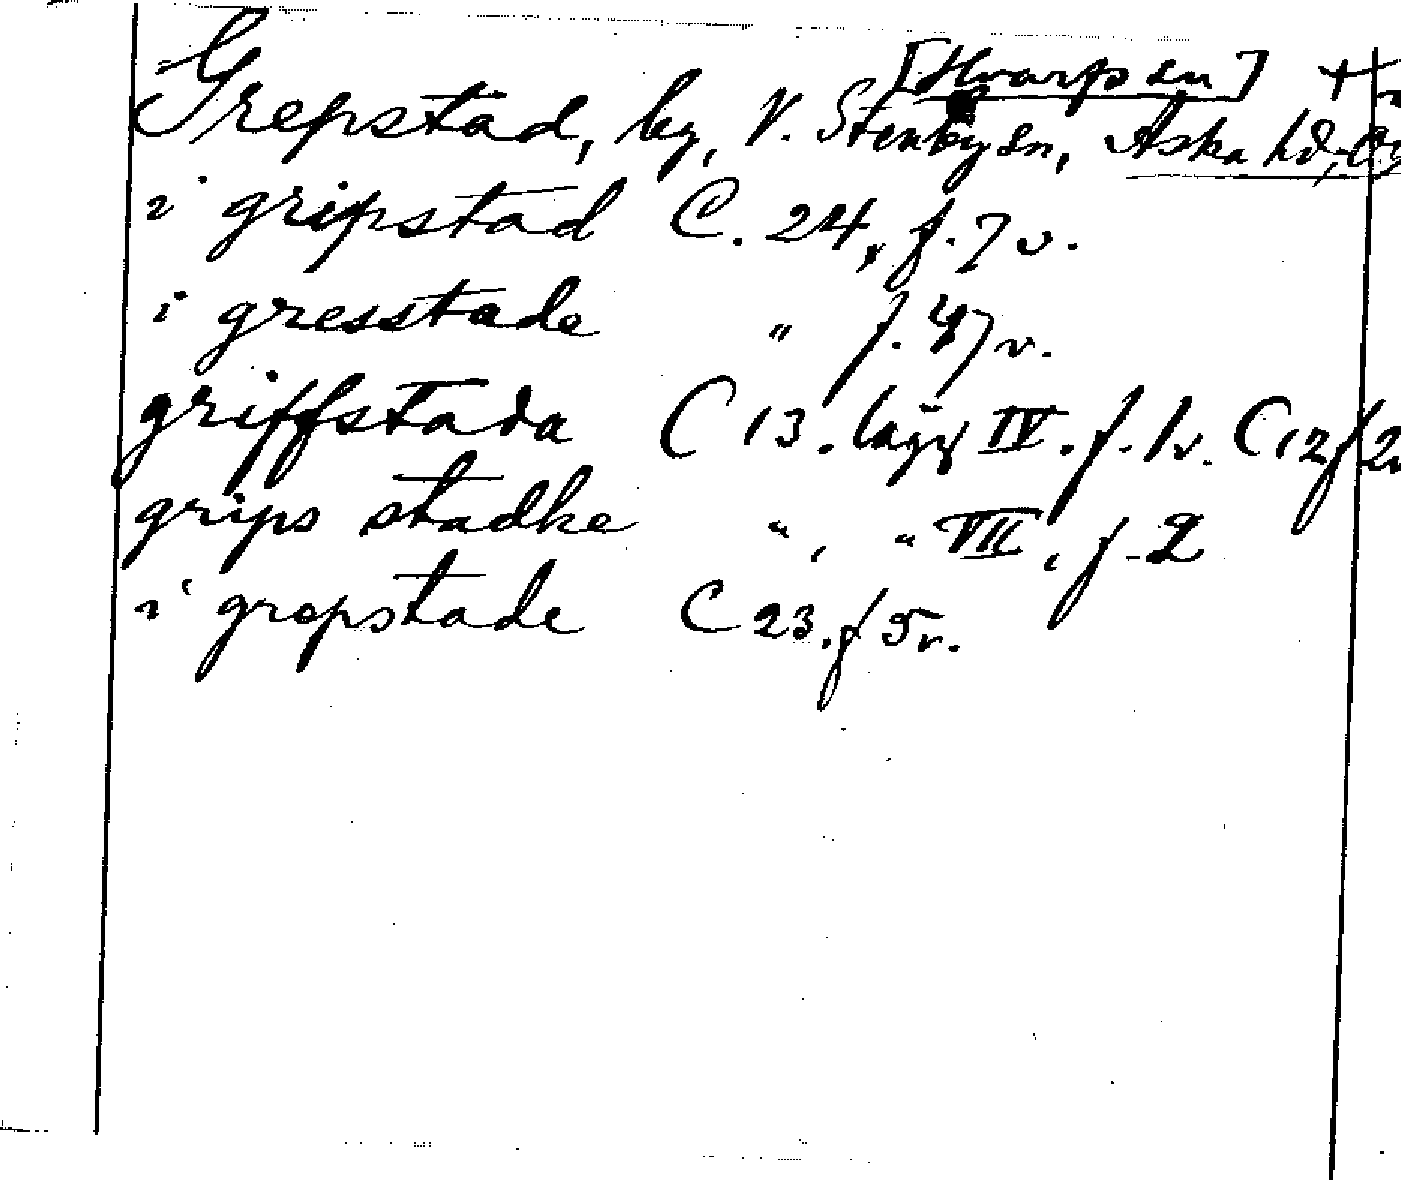 [Hvarfs sn] +
Grepstad, by, V. Stenby sn, Aska hd, Ög
i gripstad C. 24, f. 7 v.
i gresstade " f. 47 v.
griffstada C 13. lägg IV. f. 1v. C 12 f 2
grips stadhe ", " VII, f. 2
i grepstade C 23. f 5v.